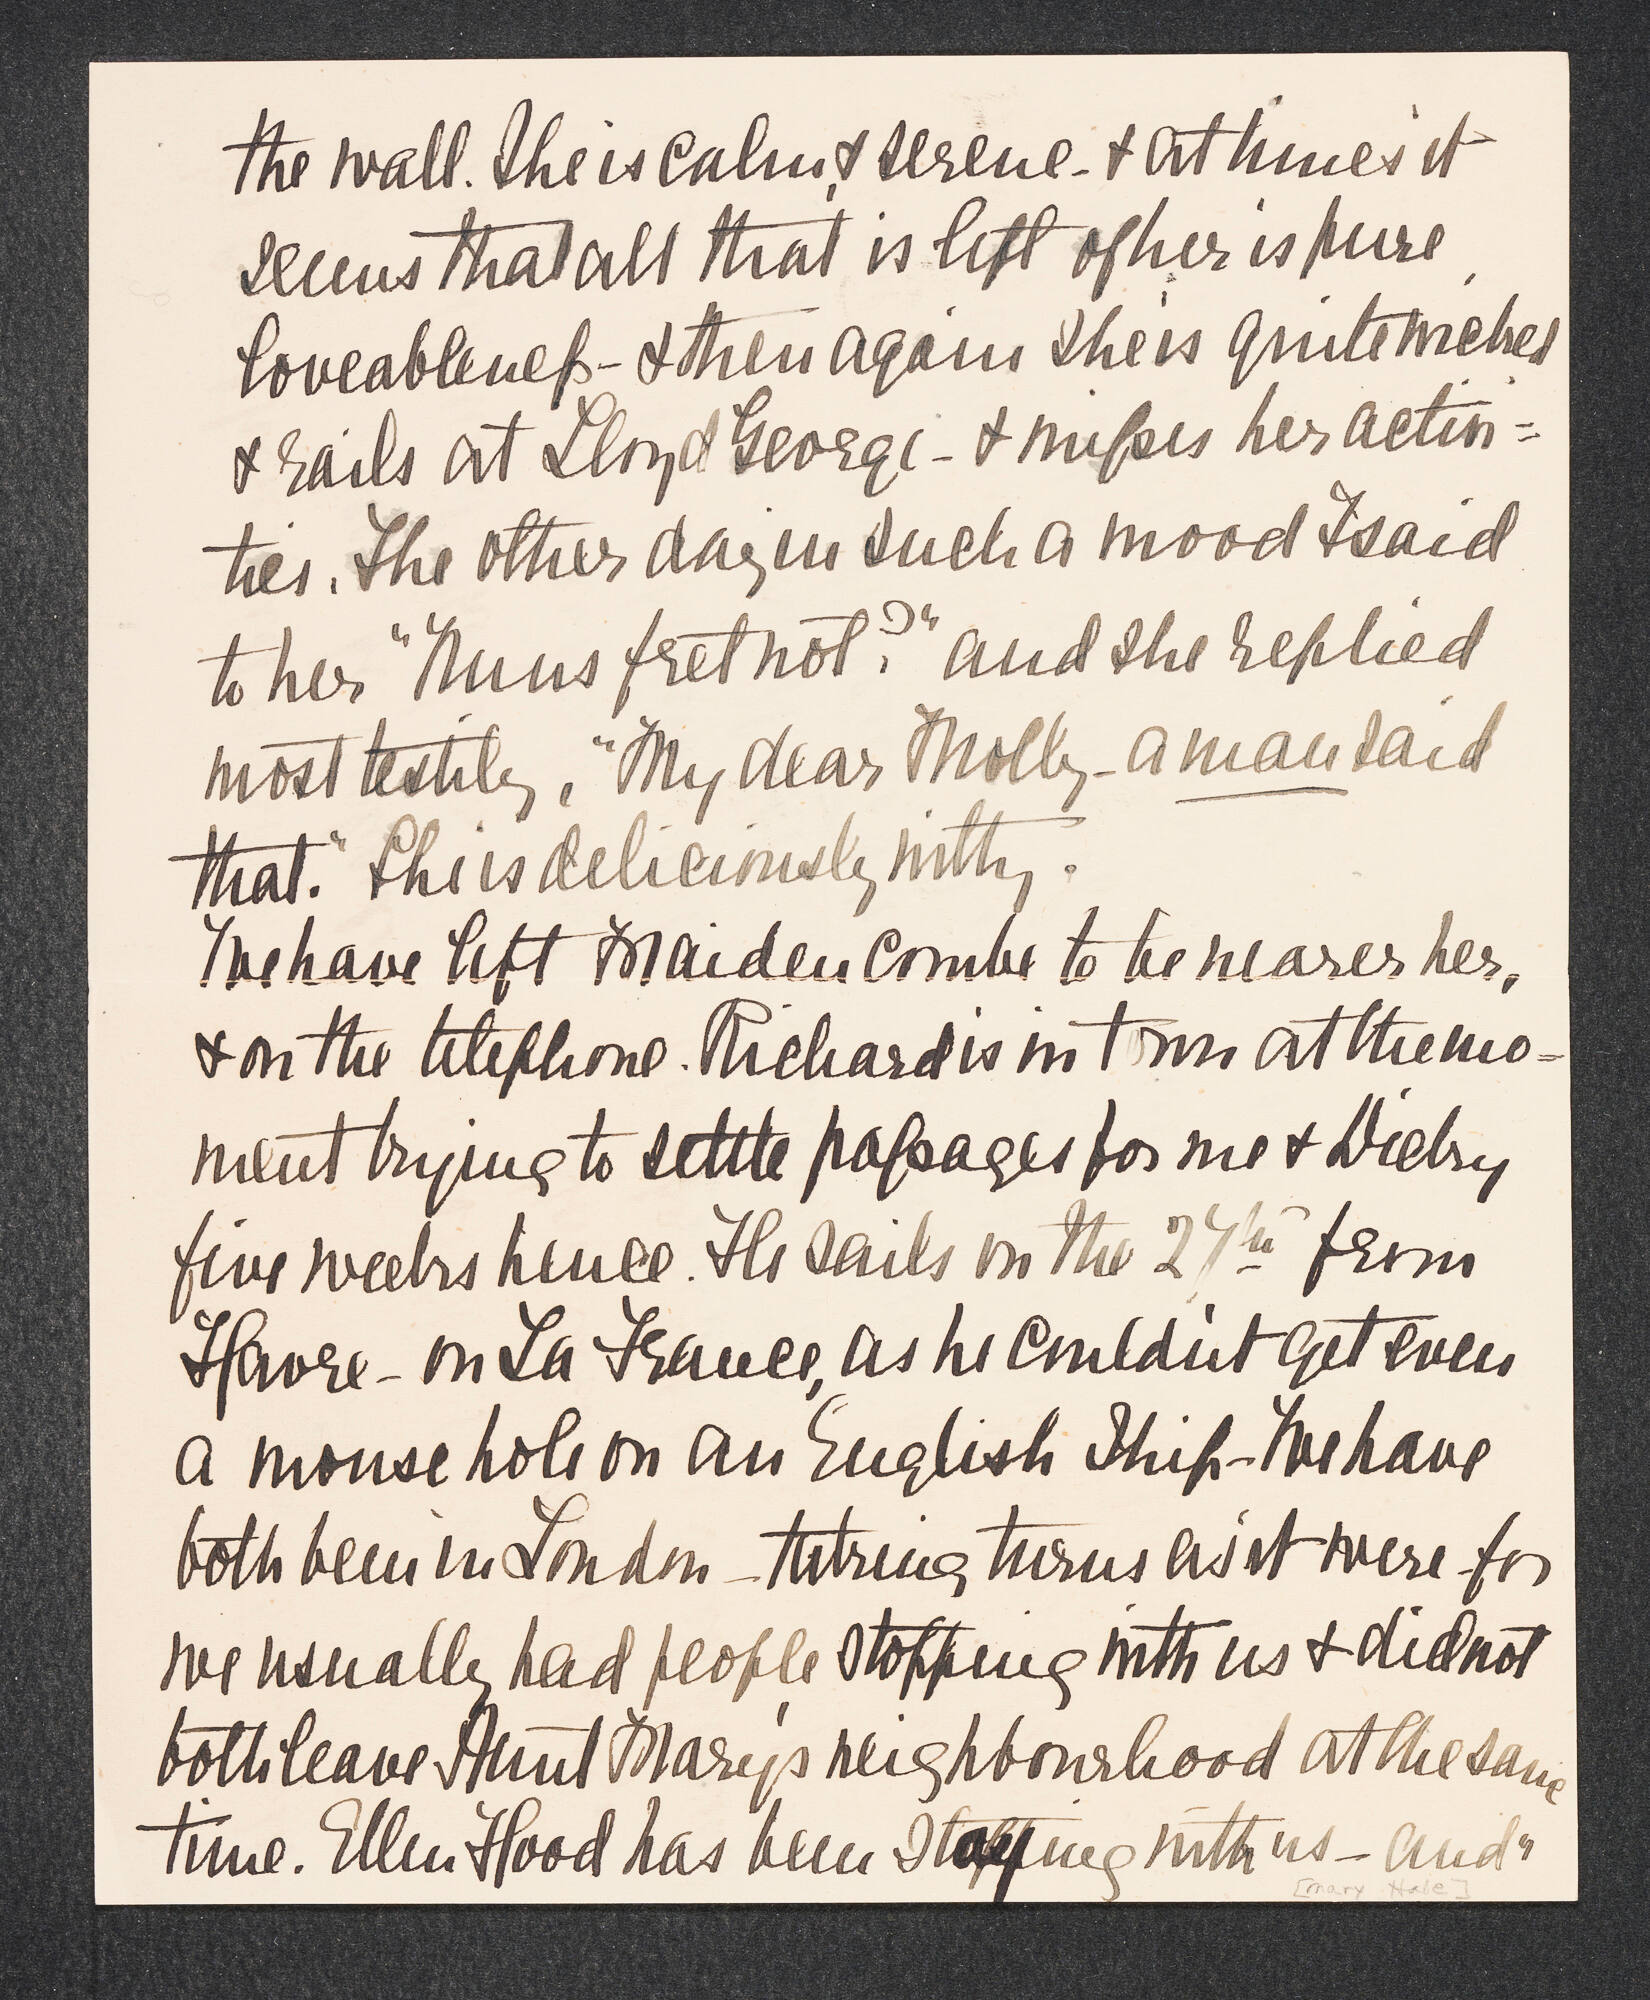 the wall. She is calm, & serene - & at times it
seems that all that is left of her is pure
loveableness - & then again she is quite wicked
& rails at Lloyd George - & misses her activi=
ties. The other day in such a mood I said
to her "Nuns fret not?" and she replied
most testily, "My dear Molly - a man said
that." She is deliciously witty.
We have left Maidencombe to be nearer her,
& on the telephone. Richard is in Town at the mo=
ment trying to settle passages for me & Dicky
five weeks hence. He sails on the 27th from
Havre - on La France, as he couldn't get even
a mouse hole on an English Ship - We have
both been in London - taking turns as it were - for
we usually had people stopping with us & did not
both leave Aunt Mary's neighbourhood at the same
time. Ellen Hood has been staying with us - and"
[Mary Hale]